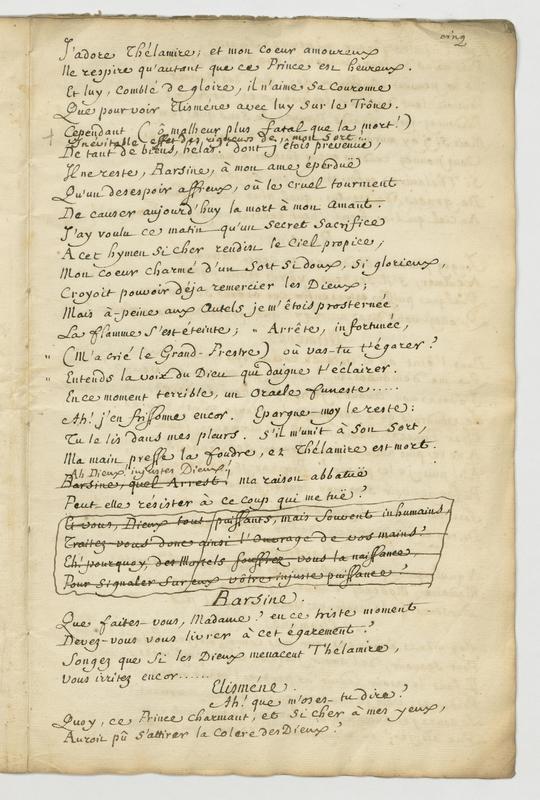 cinq
J'adore Thélamire; et mon coeur amoureux
Ne respire qu'autant que ce Prince est heureux.
Et luy, comblé de gloire, il n'aime sa Couronne
Que pour voir Elisméne avec luy sur le Trône.
Cependant (ô malheur plus fatal que la mort!)
Inévitable effet des rigueurs de mon Sort...
De tant de biens, helas! dont j'étois prévenuë,
Il ne reste, Barsine, à mon ame éperduë
Qu'un desespoir affreux, où le cruel tourment
De causer aujourd'huy la mort à mon Amant.
J'ay voulu ce matin qu'un Secret Sacrifice
A cet hymen si cher rendist le Ciel propice;
Mon coeur charmé d'un Sort si doux, si glorieux,
Croyoit pouvoir déja remercier les Dieux;
Mais à-peine aux Autels je m'étois prosternée,
La flamme s'est éteinte; " Arrête, infortunée,
" (M'a crié le Grand-Prestre) où vas-tu t'égarer?
" Entends la voix du Dieu qui daigne t'éclairer.
En ce moment terrible, un Oracle funeste.....
Ah! j'en frissonne encor. Epargne-moy le reste:
Tu le lis dans mes pleurs. S'il m'unit à son Sort,
Ma main presse la foudre, et Thélamire est mort.
Ah Dieux! injustes Dieux!
Barsine, quel Arrest! ma raison abbatuë
Peut elle résister à ce coup qui me tuë?
Et vous, Dieux tout puissants, mais souvent inhumains,
Traitez-vous donc ainsi l'Ouvrage de vos mains?
Eh! pourquoy, des Mortels souffrez vous la naissance
Pour signaler sur eux vôtre injuste puissance?
Barsine.
Que faites-vous, Madame? en ce triste moment
Devez-vous vous livrer à cet égarement?
Songez que si les Dieux menacent Thélamire,
Vous irritez encor......
Elisméne.
Ah! que m'oses-tu dire?
Quoy, ce Prince charmant, et si cher à mes yeux,
Auroit pû s'attirer la Colere des Dieux?